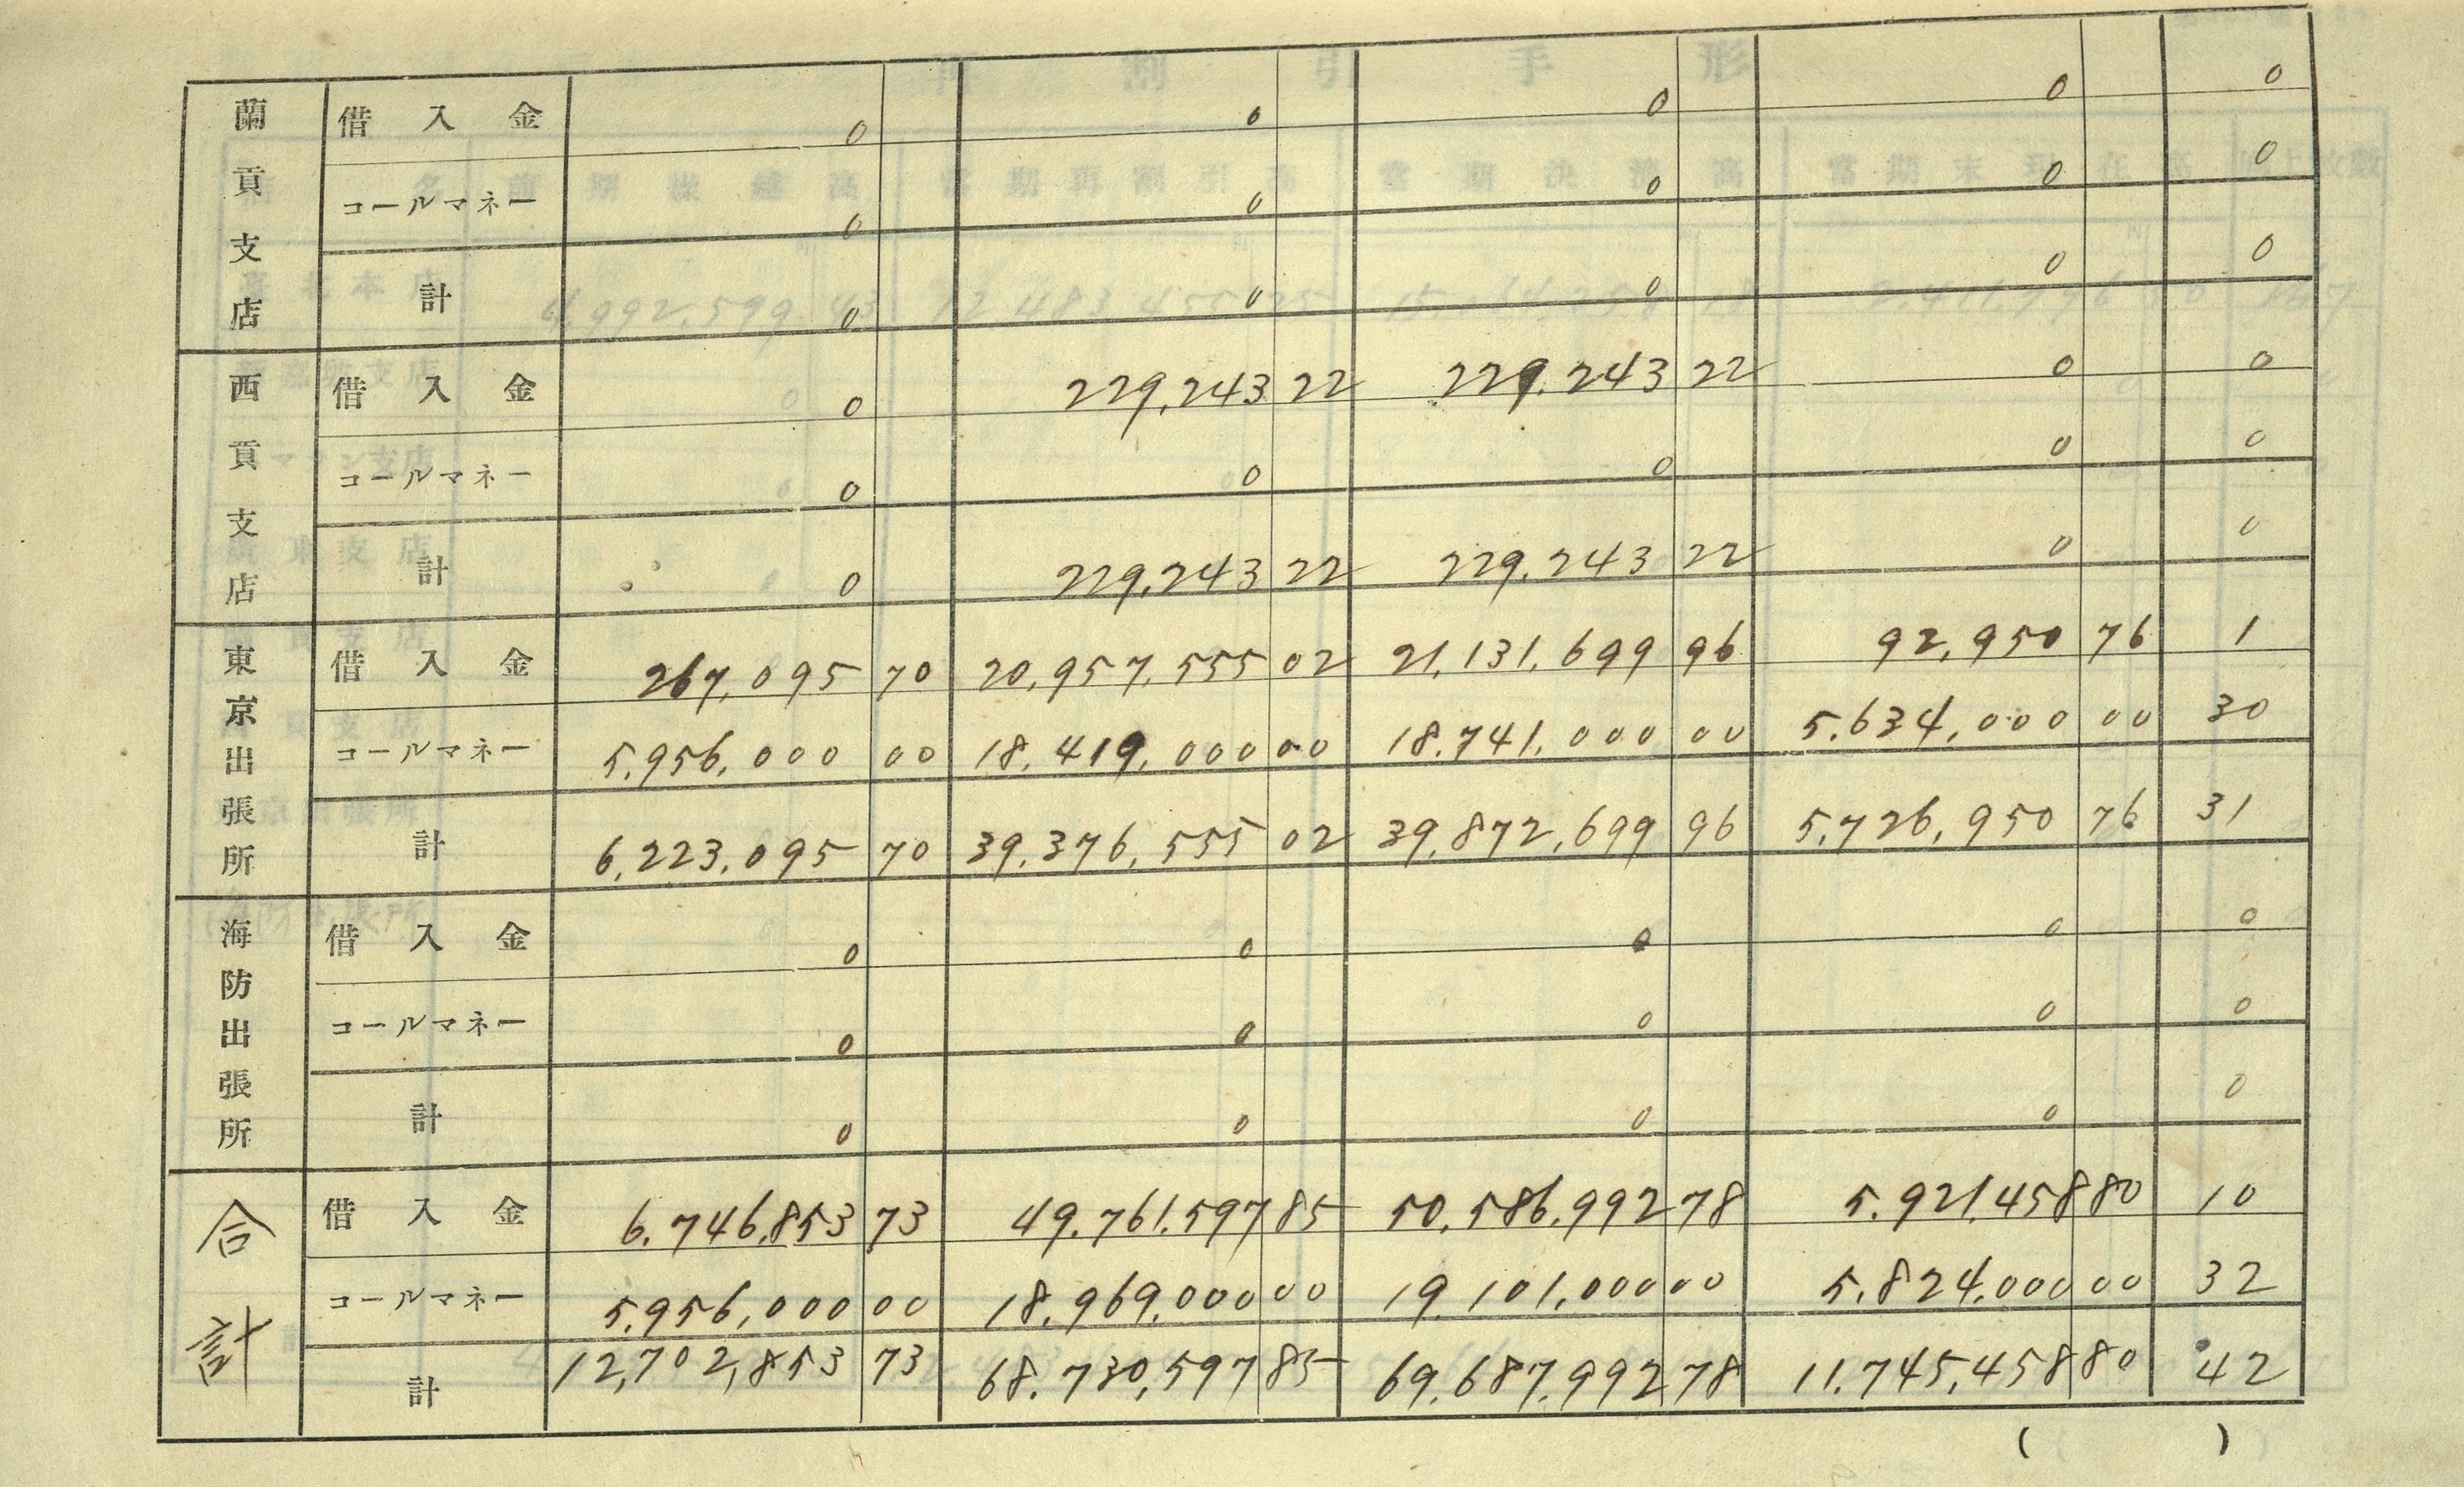 蘭貢支店 借入金 0 0 0 0 0
コールマネー 0 0 0 0 0
計 0 0 0 0 0
西貢支店 借入金 0 229,243 22 229,243 22 0 0
コールマネー 0 0 0 0 0
計 0 229,243 22 229,243 22 0 0
東京出張所 借入金 267,095 70 20,957,555 02 21,131,699 96 92,950 76 1
コールマネー 5,956,000 00 18,419,000 00 18,741,000 00 5,634,000 00 30
計 6,223,095 70 39,376,555 02 39,872,699 96 5,726,950 76 31
海防出張所 借入金 0 0 0 0 0
コールマネー 0 0 0 0 0
計 0 0 0 0 0
合計 借入金 6,746,853 73 49,761,597 85 50,586,992 78 5,921,458 80 10
コールマネー 5,956,000 00 18,969,000 00 19,101,000 00 5,824,000 00 32
計 12,702,853 73 68,730,597 85 69,687,992 78 11,745,458 80 42
( )